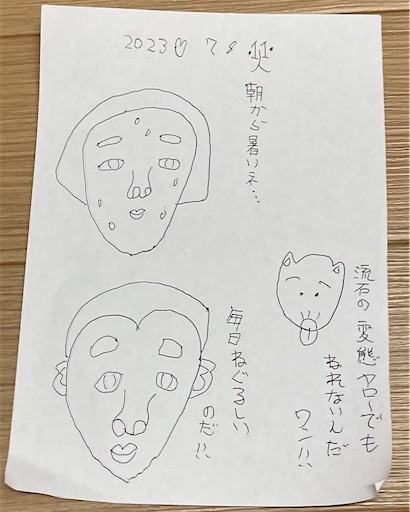 2023♡7♡11火
朝から暑いネ…
毎日ねぐるしい
のだ!!
流石の変態ヤローでも
ねれないんだ
ワン!!